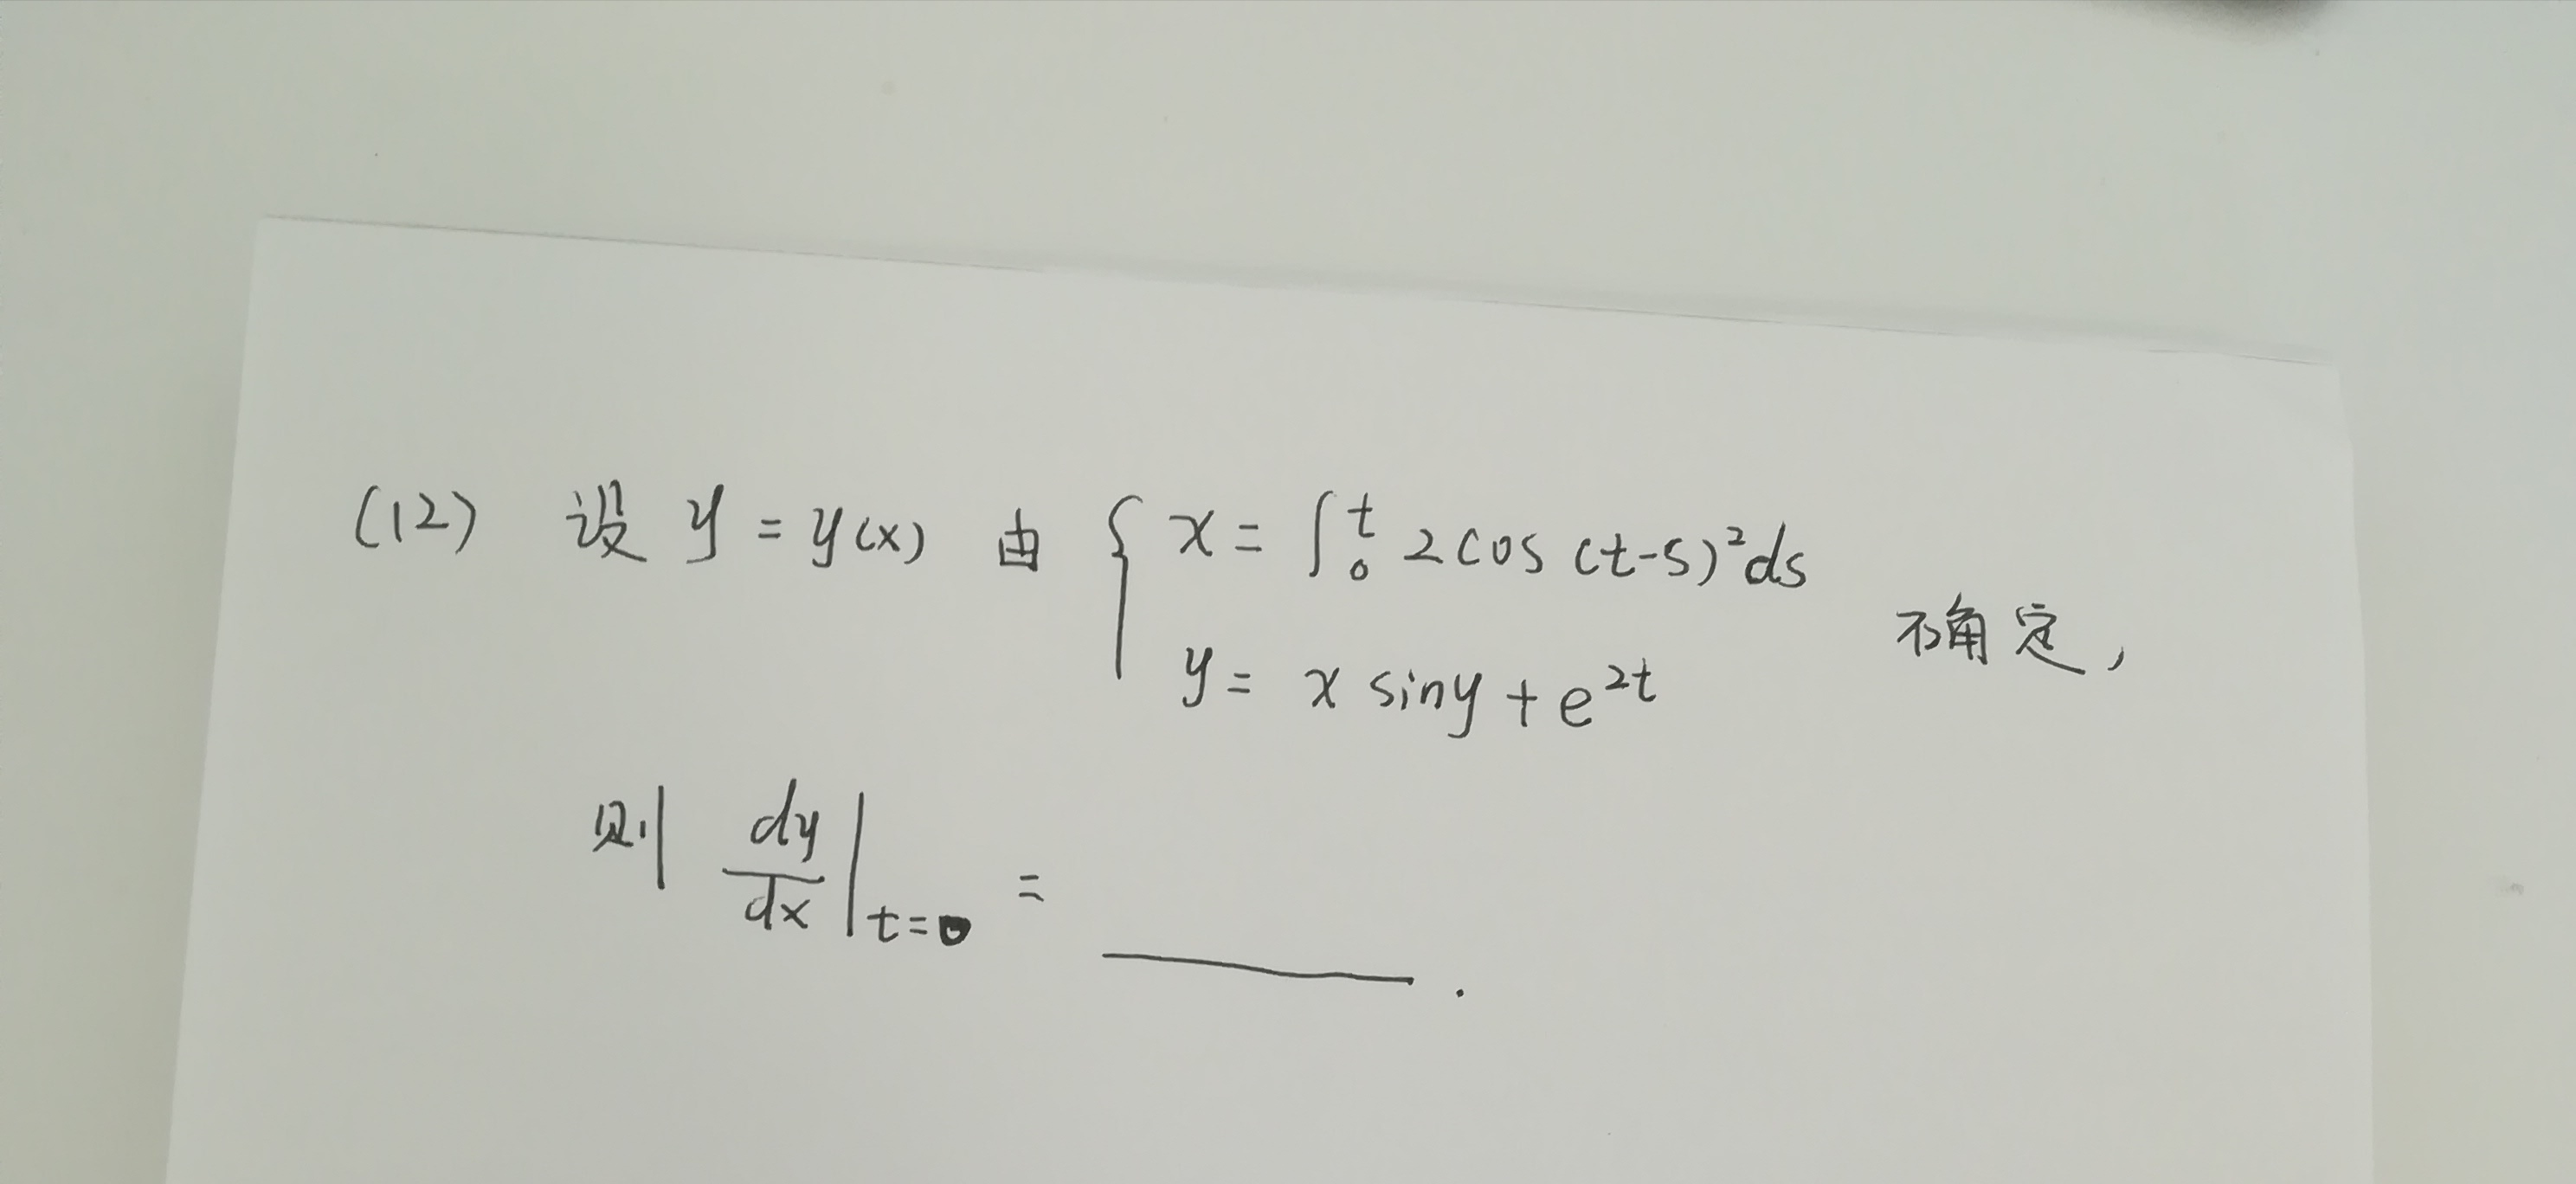 (12) 设 y = y(x) 由 { x = ∫₀ᵗ 2cos (t-s)² ds
y = x siny + e^{2t} 确定,
则 dy/dx |_{t=0} = ______ .